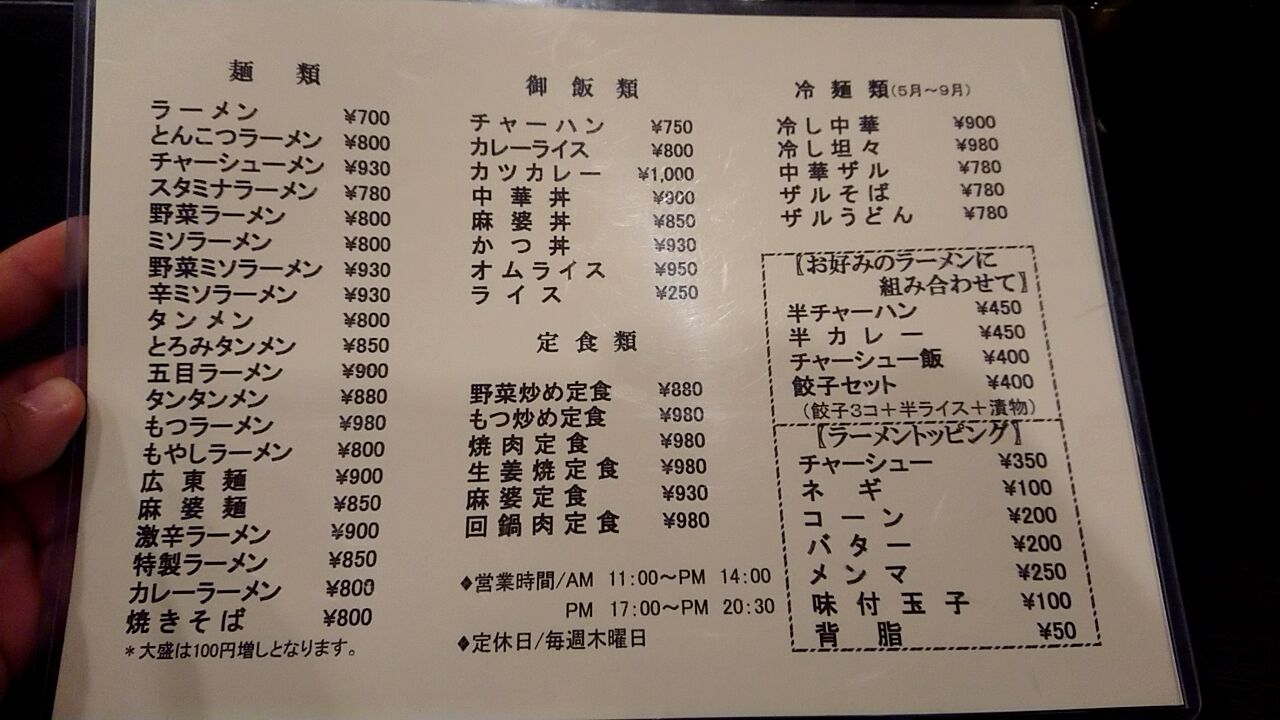 麺類
ラーメン ¥700
とんこつラーメン ¥800
チャーシューメン ¥930
スタミナラーメン ¥780
野菜ラーメン ¥800
ミソラーメン ¥800
野菜ミソラーメン ¥930
辛ミソラーメン ¥930
タンメン ¥800
とろみタンメン ¥850
五目ラーメン ¥900
タンタンメン ¥880
もつラーメン ¥980
もやしラーメン ¥800
広東麺 ¥900
麻婆麺 ¥850
激辛ラーメン ¥900
特製ラーメン ¥850
カレーラーメン ¥800
焼きそば ¥800
*大盛は100円増しとなります。
御飯類
チャーハン ¥750
カレーライス ¥800
カツカレー ¥1,000
中華丼 ¥900
麻婆丼 ¥850
かつ丼 ¥930
オムライス ¥950
ライス ¥250
定食類
野菜炒め定食 ¥880
もつ炒め定食 ¥980
焼肉定食 ¥980
生姜焼定食 ¥980
麻婆定食 ¥930
回鍋肉定食 ¥980
♦営業時間/AM 11:00～PM 14:00
PM 17:00～PM 20:30
♦定休日/毎週木曜日
冷麺類(5月～9月)
冷し中華 ¥900
冷し坦々 ¥980
中華ザル ¥780
ザルそば ¥780
ザルうどん ¥780
〖お好みのラーメンに
組み合わせて〗
半チャーハン ¥450
半カレー ¥450
チャーシュー飯 ¥400
餃子セット ¥400
(餃子3コ＋半ライス＋漬物)
〖ラーメントッピング〗
チャーシュー ¥350
ネギ ¥100
コーン ¥200
バター ¥200
メンマ ¥250
味付玉子 ¥100
背脂 ¥50